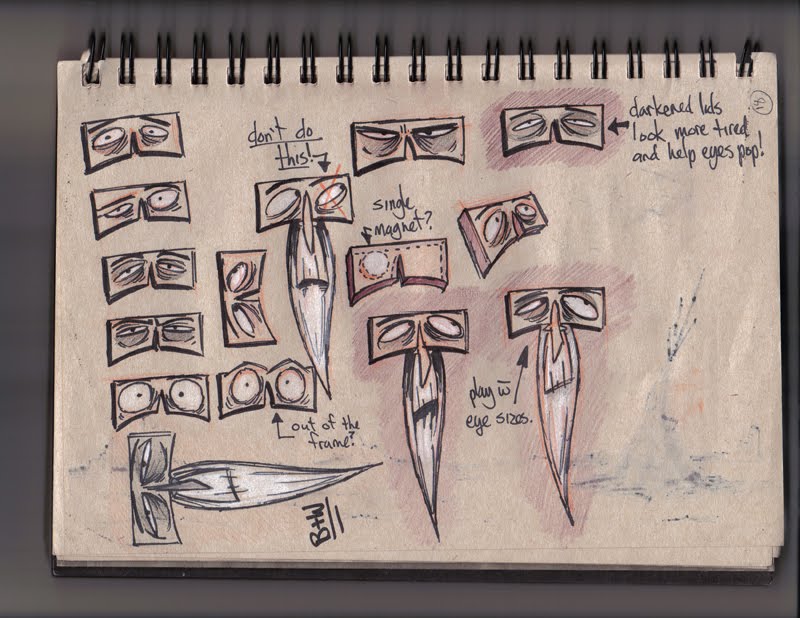 don't do
this!
darkened lids
look more tired
and help eyes pop!
single
magnet?
play w̄
eye sizes.
out of the
frame?